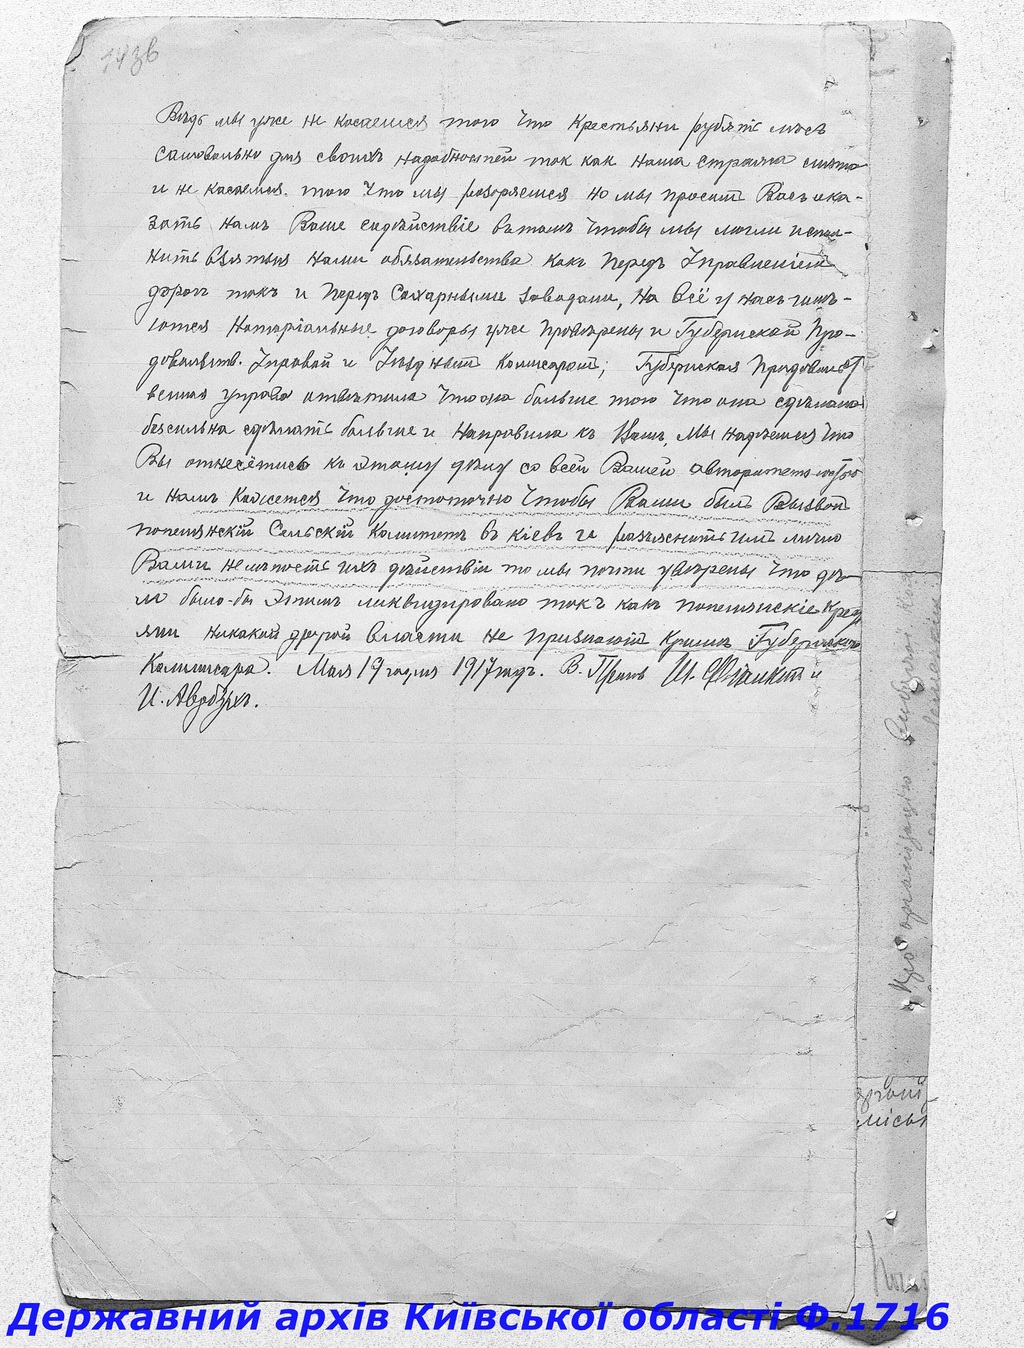 143б
Ведь мы уже не касаемся того что Крестьяни рубять лѣсъ
самовольно для своихъ надобностей так как наша страна снята
и не касаемся того что мы разоряемся но мы просим Васъ ока-
зать намъ Ваше садѣйствіе въ томъ чтобы мы могли испол-
нить взятыя нами обязательства какъ передъ Управленіем
дорог такъ и передъ Сахарными заводами, На всё у насъ имѣ-
ются Нотаріальные договоры уже провѣрены и Губернской Про-
довольств. Управой и Уѣздным Комисаром; Губернская Продовольст
венная управа отвѣтила что она больше того что она сдѣлала
безсильна сдѣлать больше и направила къ Вамъ, Мы надѣемся что
Вы отнесётись къ этому дѣлу со всей Вашей авторитетностью
и намъ Кажется что достаточно чтобы Вами был Вызван
попелянскій Сельскій Комитетъ въ Кіевъ и разъяснить им лично
Вами нелѣпость ихъ дѣйствій то мы почти увѣрены что дѣ-
ло было-бы этимъ ликвидировано такъ какъ попелянскіе Крес
яни никакой другой власти не признают Кромѣ Губернскаго
Комиссара. Мая 19 годня 1917 годъ. В.
И. Авербухъ.
Про організацію
міськ
Державний архів Київської області Ф.1716